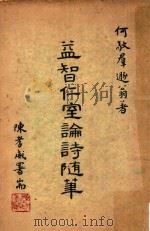 何敬羣遯翁著
益智仁室論詩随筆
陳孝威署耑